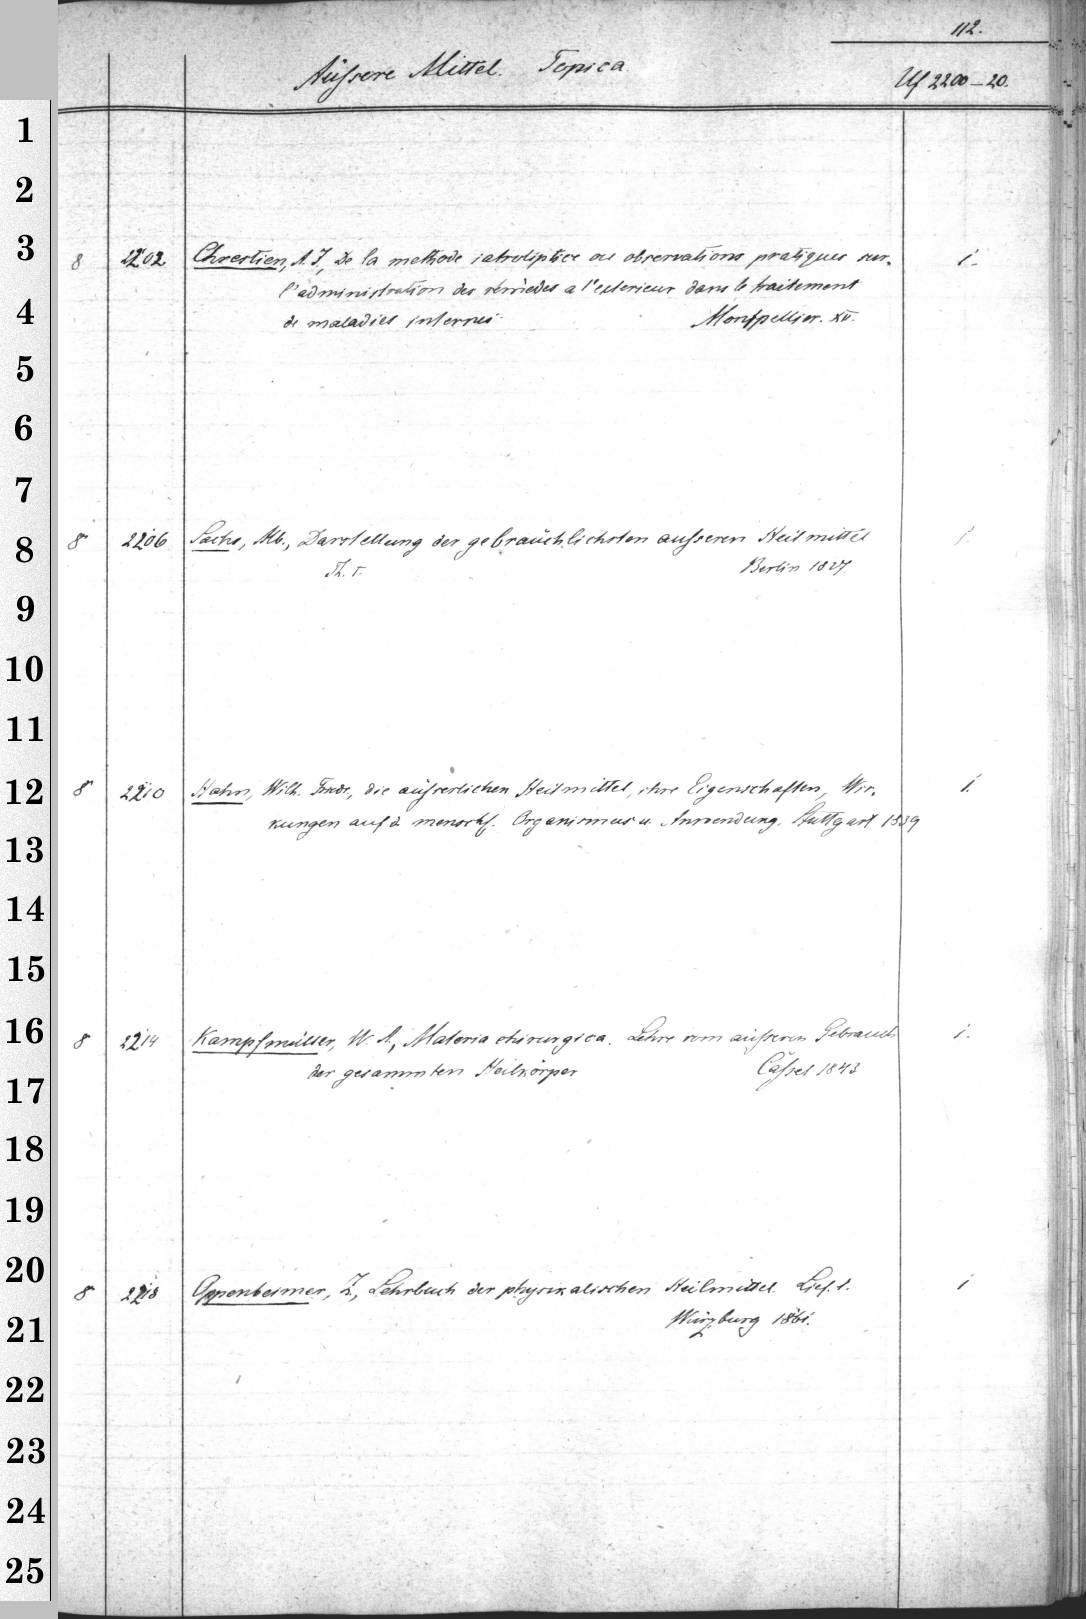 112.
Äußere Mittel. Topica
Uf 2200-20.
1
2
3
8 2202 Chrestien, A. J., De la methode iatroliptice ou observations pratiques sur
l'administration des remèdes a l'exterieur dans le traitement
4
de maladies internes Montpellier. XII.
1.
5
6
7
8
8 2206 Sachs, Alb., Darstellung der gebräuchlichsten äusseren Heilmittel 1
Th. I. Berlin 1827
9
10
11
12
8 2210 Hahn, Wilh. Friedr., die äußerlichen Heilmittel, ihre Eigenschaften, Wir- 1.
kungen auf d. menschl. Organismus u. Anwendung. Stuttgart 1839
13
14
15
16
8 2214 Kampfmüller, W. A., Materia chirurgica. Lehre vom äußeren Gebrauch 1.
der gesammten Heilkörper Caßel 1843
17
18
19
20
8 2218 Oppenheimer, Z., Lehrbuch der physikalischen Heilmittel Lief. 1. 1
Würzburg 1861.
21
22
23
24
25